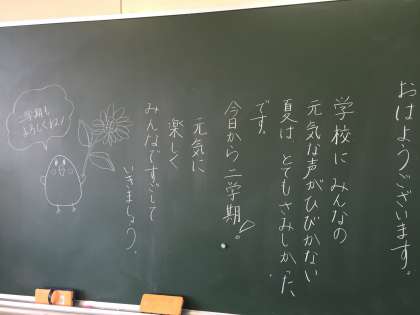 おはようございます。
学校に みんなの
元気な声がひびかない
夏は とてもさみしかった
です。
今日から 二学期!。
元気に
楽しく
みんなですごして
いきましょう。
二学期も
よろしくね!